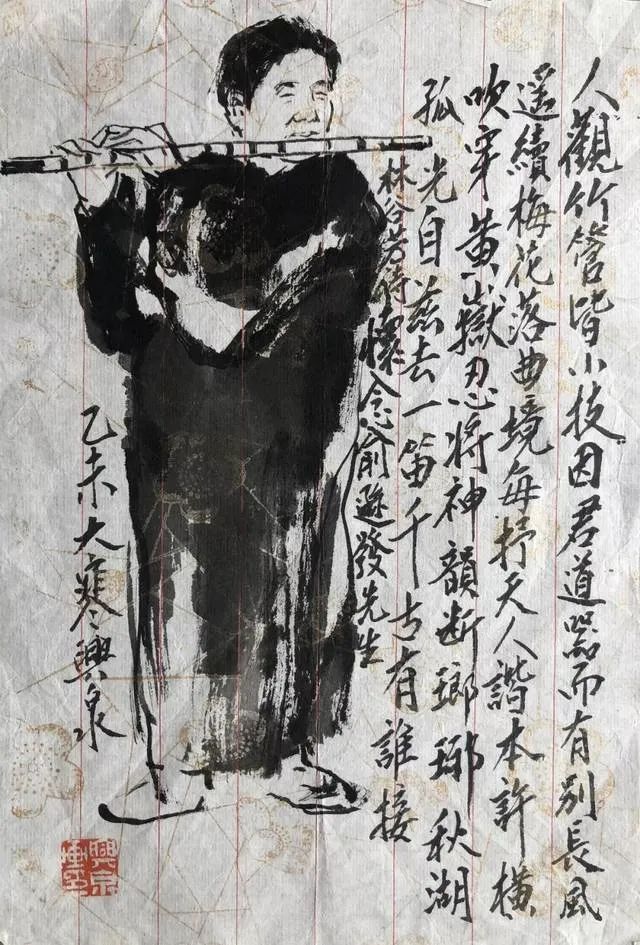 人觀竹管皆小技因君道器而有别長風
遥續梅花落曲境每抒天人諧本許橫
吹穿黄山嶽忍將神韻断瑯琊秋湖
孤光自茲去一笛千古有誰接
林谷芳詩懷念俞遜發先生
乙未大寒興泉